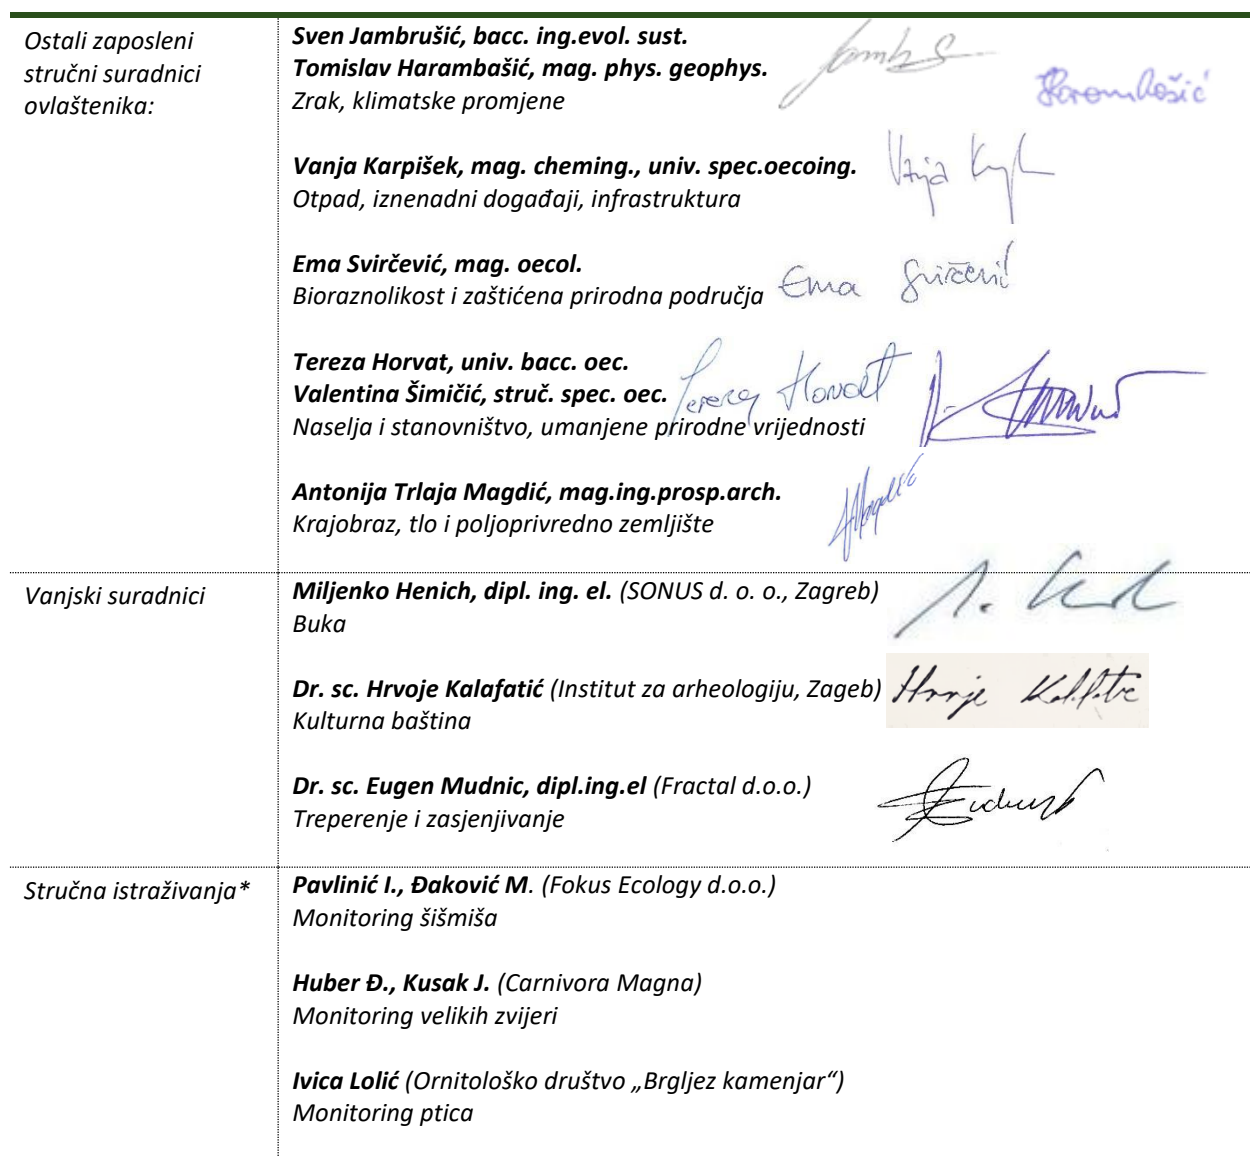 Ostali zaposleni
stručni suradnici
ovlaštenika:
Sven Jambrušić, bacc. ing.evol. sust.
Tomislav Harambašić, mag. phys. geophys.
Zrak, klimatske promjene
Vanja Karpišek, mag. cheming., univ. spec.oecoing.
Otpad, iznenadni događaji, infrastruktura
Ema Svirčević, mag. oecol.
Bioraznolikost i zaštićena prirodna područja
Ema Svirčević
Tereza Horvat, univ. bacc. oec.
Valentina Šimičić, struč. spec. oec.
Tereza Horvat
Naselja i stanovništvo, umanjene prirodne vrijednosti
Antonija Trlaja Magdić, mag.ing.prosp.arch.
Krajobraz, tlo i poljoprivredno zemljište
Vanjski suradnici
Miljenko Henich, dipl. ing. el. (SONUS d. o. o., Zagreb)
Buka
Dr. sc. Hrvoje Kalafatić (Institut za arheologiju, Zageb)
Kulturna baština
Dr. sc. Eugen Mudnic, dipl.ing.el (Fractal d.o.o.)
Treperenje i zasjenjivanje
Stručna istraživanja*
Pavlinić I., Đaković M. (Fokus Ecology d.o.o.)
Monitoring šišmiša
Huber Đ., Kusak J. (Carnivora Magna)
Monitoring velikih zvijeri
Ivica Lolić (Ornitološko društvo „Brgljez kamenjar“)
Monitoring ptica